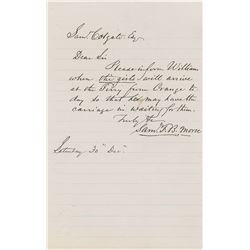 Saml. Colgate Esq
Dear Sir
Please inform William
when the girls will arrive
at the Ferry from Orange to
day so that he may have the
carriage in waiting for them.
Truly Yr
Saml. F. B. Morse
Saturday 30th Decr.